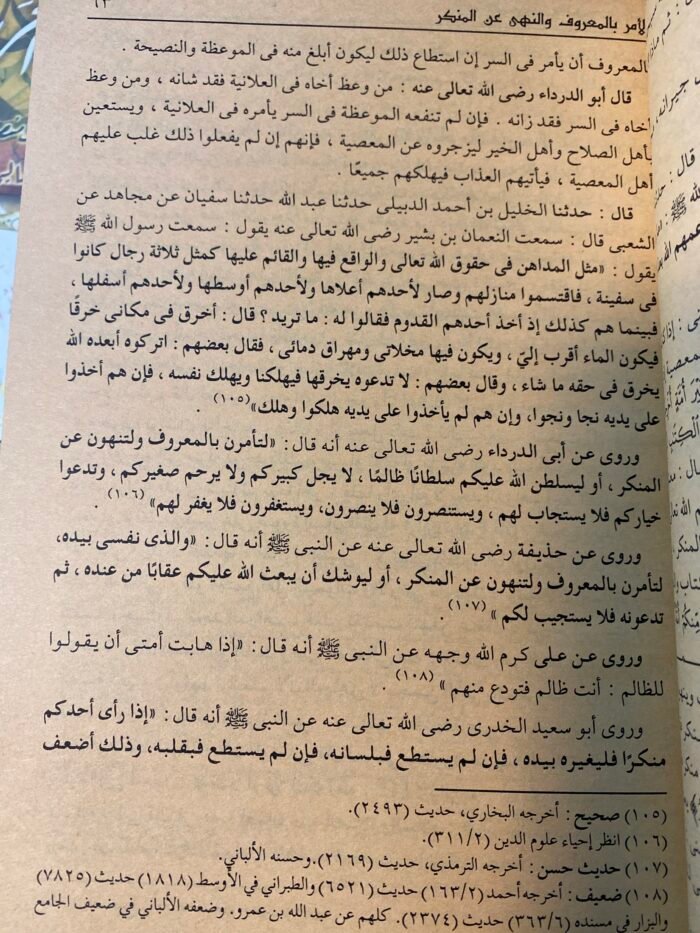 لأمر بالمعروف والنهى عن المنكر
المعروف أن يأمر فى السر إن استطاع ذلك ليكون أبلغ منه فى الموعظة والنصيحة .
قال أبو الدرداء رضى الله تعالى عنه : من وعظ أخاه فى العلانية فقد شانه ، ومن وعظ
أخاه فى السر فقد زانه . فإن لم تنفعه الموعظة فى السر يأمره فى العلانية ، ويستعين
بأهل الصلاح وأهل الخير ليزجروه عن المعصية ، فإنهم إن لم يفعلوا ذلك غلب عليهم
أهل المعصية ، فيأتيهم العذاب فيهلكهم جميعًا .
قال : حدثنا الخليل بن أحمد الدبيلى حدثنا عبد الله حدثنا سفيان عن مجاهد عن
الشعبى قال : سمعت النعمان بن بشير رضى الله تعالى عنه يقول : سمعت رسول الله ﷺ
يقول : «مثل المداهن فى حقوق الله تعالى والواقع فيها والقائم عليها كمثل ثلاثة رجال كانوا
فى سفينة ، فاقتسموا منازلهم وصار لأحدهم أعلاها ولأحدهم أوسطها ولأحدهم أسفلها ،
فبينما هم كذلك إذ أخذ أحدهم القدوم فقالوا له : ما تريد ؟ قال : أخرق فى مكانى خرقًا
فيكون الماء أقرب إليّ ، ويكون فيها مخلاتى ومهراق دمائى ، فقال بعضهم : اتركوه أبعده الله
يخرق فى حقه ما شاء ، وقال بعضهم : لا تدعوه يخرقها فيهلكنا ويهلك نفسه ، فإن هم أخذوا
على يديه نجا ونجوا، وإن هم لم يأخذوا على يديه هلكوا وهلك»(١٠٥) .
وروى عن أبى الدرداء رضى الله تعالى عنه أنه قال : «لتأمرن بالمعروف ولتنهون عن
المنكر ، أو ليسلطن الله عليكم سلطانًا ظالمًا ، لا يجل كبيركم ولا يرحم صغيركم ، وتدعوا
خياركم فلا يستجاب لهم ، ويستنصرون فلا ينصرون، ويستغفرون فلا يغفر لهم» (١٠٦) .
وروى عن حذيفة رضى الله تعالى عنه عن النبى ﷺ أنه قال : «والذى نفسى بيده،
لتأمرن بالمعروف ولتنهون عن المنكر ، أو ليوشك أن يبعث الله عليكم عقابًا من عنده ، ثم
تدعونه فلا يستجيب لكم » (١٠٧) .
وروى عن على كرم الله وجهه عن النبى ﷺ أنه قال : «إذا هابت أمتى أن يقولوا
للظالم : أنت ظالم فتودع منهم » (١٠٨) .
وروى أبو سعيد الخدرى رضى الله تعالى عنه عن النبى ﷺ أنه قال : «إذا رأى أحدكم
منكرًا فليغيره بيده ، فإن لم يستطع فبلسانه، فإن لم يستطع فبقلبه، وذلك أضعف
(١٠٥) صحيح : أخرجه البخاري، حديث (٢٤٩٣).
(١٠٦) انظر إحياء علوم الدين (٣١١/٢).
(١٠٧) حديث حسن : أخرجه الترمذي، حديث (٢١٦٩). وحسنه الألباني.
(١٠٨) ضعيف : أخرجه أحمد (١٦٣/٢) حديث (٦٥٢١) والطبراني في الأوسط (١٨١٨) حديث (٧٨٢٥)
والبزار في مسنده (٣٦٣/٦) حديث (٢٣٧٤). كلهم عن عبد الله بن عمرو. وضعفه الألباني في ضعيف الجامع